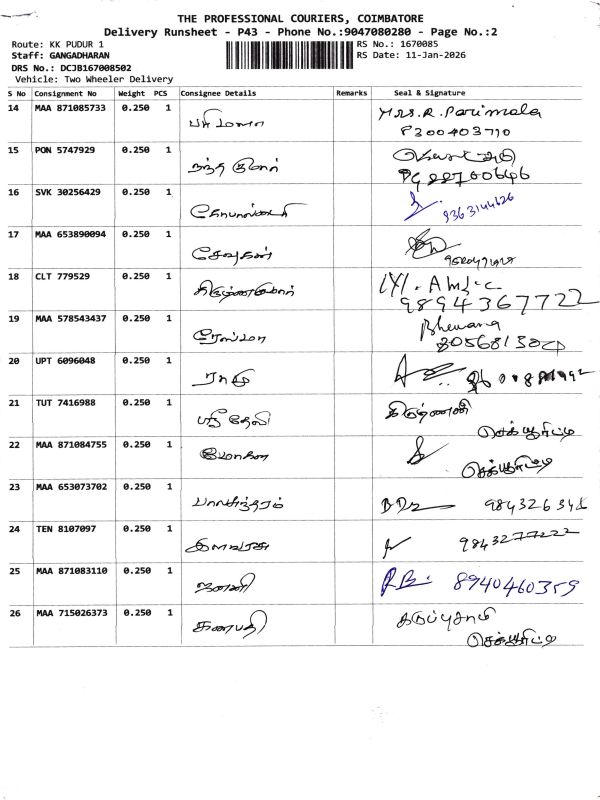 THE PROFESSIONAL COURIERS, COIMBATORE
Delivery Runsheet - P43 - Phone No.:9047080280 - Page No.:2
Route: KK PUDUR 1 RS No.: 1670085
Staff: GANGADHARAN RS Date: 11-Jan-2026
DRS No.: DCJB167008502
Vehicle: Two Wheeler Delivery
S No Consignment No Weight PCS Consignee Details Remarks Seal & Signature
14 MAA 871085733 0.250 1 பரிமளா Mrs. R. Parimala
15 PON 5747929 0.250 1 நந்தகுமார்
16 SVK 30256429 0.250 1 9363144626
17 MAA 653890094 0.250 1 சேவுகன்
18 CLT 779529 0.250 1 கிருஷ்ணகுமார்
9894367722
19 MAA 578543437 0.250 1 ரேஷ்மா Bhewana
20 UPT 6096048 0.250 1 ராமு
21 TUT 7416988 0.250 1 ஸ்ரீதேவி
செக்யூரிட்டி
22 MAA 871084755 0.250 1 மோகன
செக்யூரிட்டி
23 MAA 653073702 0.250 1 பாலசுந்தரம்
24 TEN 8107097 0.250 1 இளவரசு 9843277222
25 MAA 871083110 0.250 1 ஜனனி R.B. 8940460359
26 MAA 715026373 0.250 1 கணபதி கருப்புசாமி
செக்யூரிட்டி